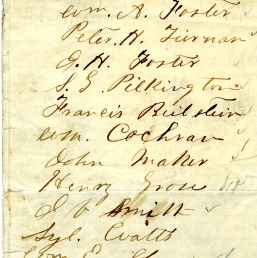 Wm. A. Foster
Peter. H. Tiernan
G. H. Foster
S. G. Pilkington
Francis Beilstein
Wm. Cochran
John Maker
Henry Grose
J V Smith
Syl. Watts
Wm E.